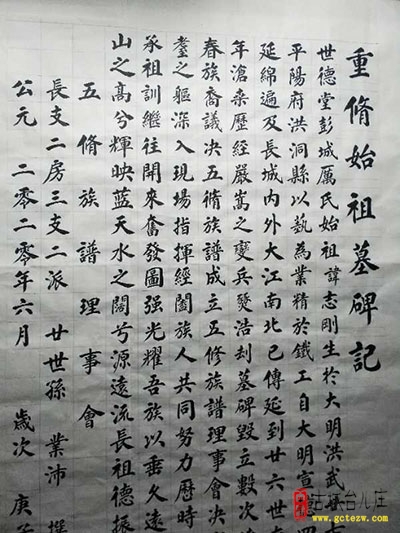 重脩始祖墓碑記
世德堂彭城厲氏始祖諱志剛生於大明洪武廿
平陽府洪洞縣以藝為業精於鐵工自大明宣
延綿遍及長城內外大江南北已傳延到廿六世
年滄桑歷經嚴嵩之變兵燹浩刦墓碑毀立數次
春族裔議决五脩族譜成立五修族譜理事會决
耋之軀深入現場指揮經闔族人共同努力歷時
承祖訓繼往開來奮發圖强光耀吾族以垂久遠
山之髙兮輝映蓝天水之闊兮源遠流長祖德振
五脩族譜理事會
長支二房三支二派 廿世孫 業沛 撰
公元 二零二零年六月 歲次 庚子
古城台儿庄
www.gctezw.com